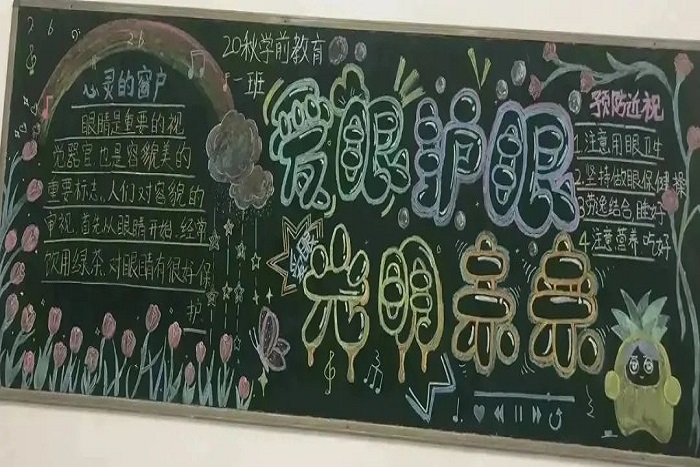 20秋学前教育
一班
心灵的窗户
眼睛是重要的视
觉器官也是容貌美的
重要标志,人们对容貌的
审视,首先从眼睛开始,经常
饮用绿茶,对眼睛有很好保
护
爱眼护眼
光明未来
预防近视
1.注意用眼卫生
2.坚持做眼保健操
3.劳逸结合,睡好
4.注意营养,吃好